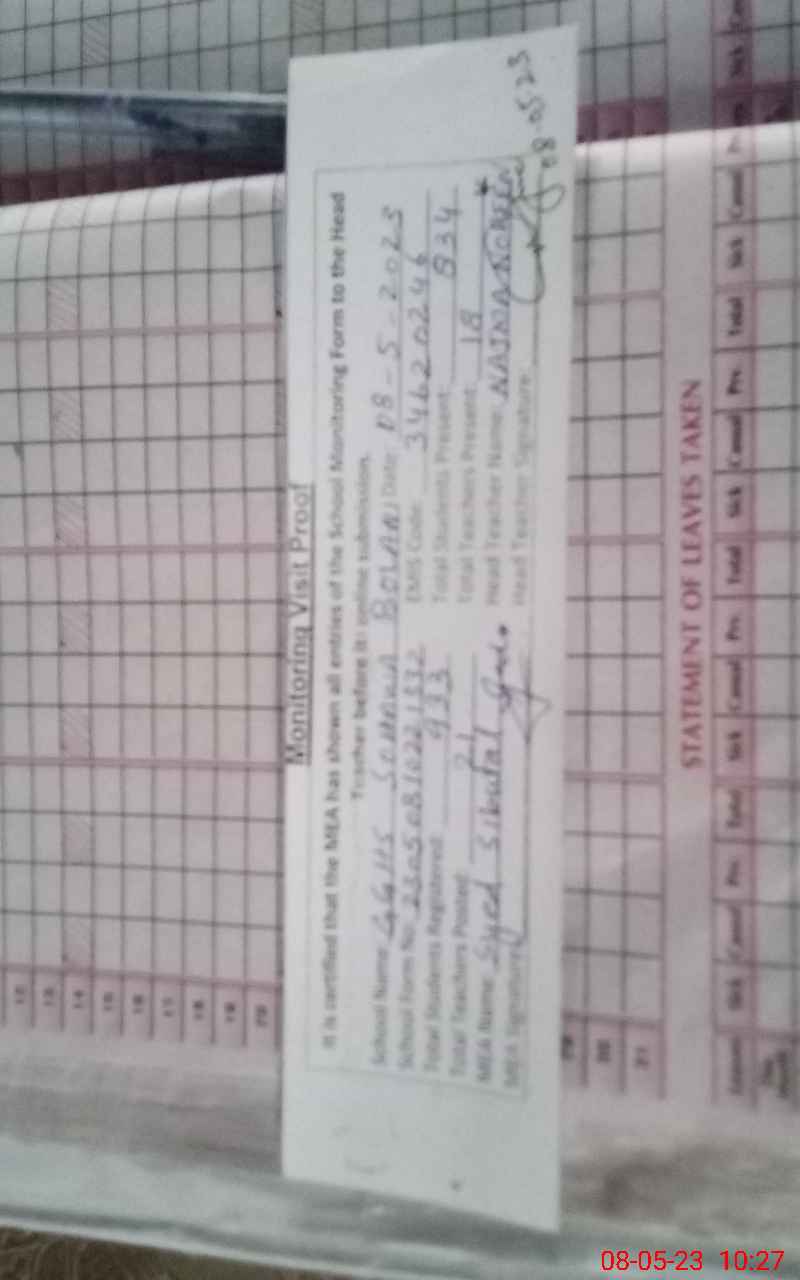 Monitoring Visit Proof
It is certified that the MEA has shown all entries of the School Monitoring Form to the Head
Teacher before it online submission.
School Name: GGHS SOHAWA BOLANI Date: 08-5-2023
School Form No: 23050810221332 EMIS Code: 34620246
Total Students Registered: 933 Total Students Present: 834
Total Teachers Posted: 21 Total Teachers Present: 18
MEA Name: Syed Sibutal Head Teacher Name:
MEA Signature: Head Teacher Signature:
08-05-23
12
13
14
15
16
17
18
19
20
29
30
31
STATEMENT OF LEAVES TAKEN
Sick Casual Prv. Total Sick Casual Prv. Total Sick Casual Prv. Total Sick Casual
08-05-23 10:27